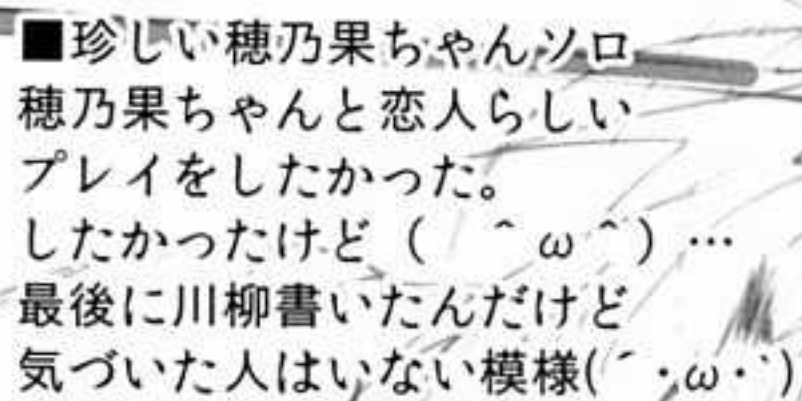 ■珍しい穂乃果ちゃんソロ
穂乃果ちゃんと恋人らしい
プレイをしたかった。
したかったけど（　＾ω＾）…
最後に川柳書いたんだけど
気づいた人はいない模様(´・ω・`)